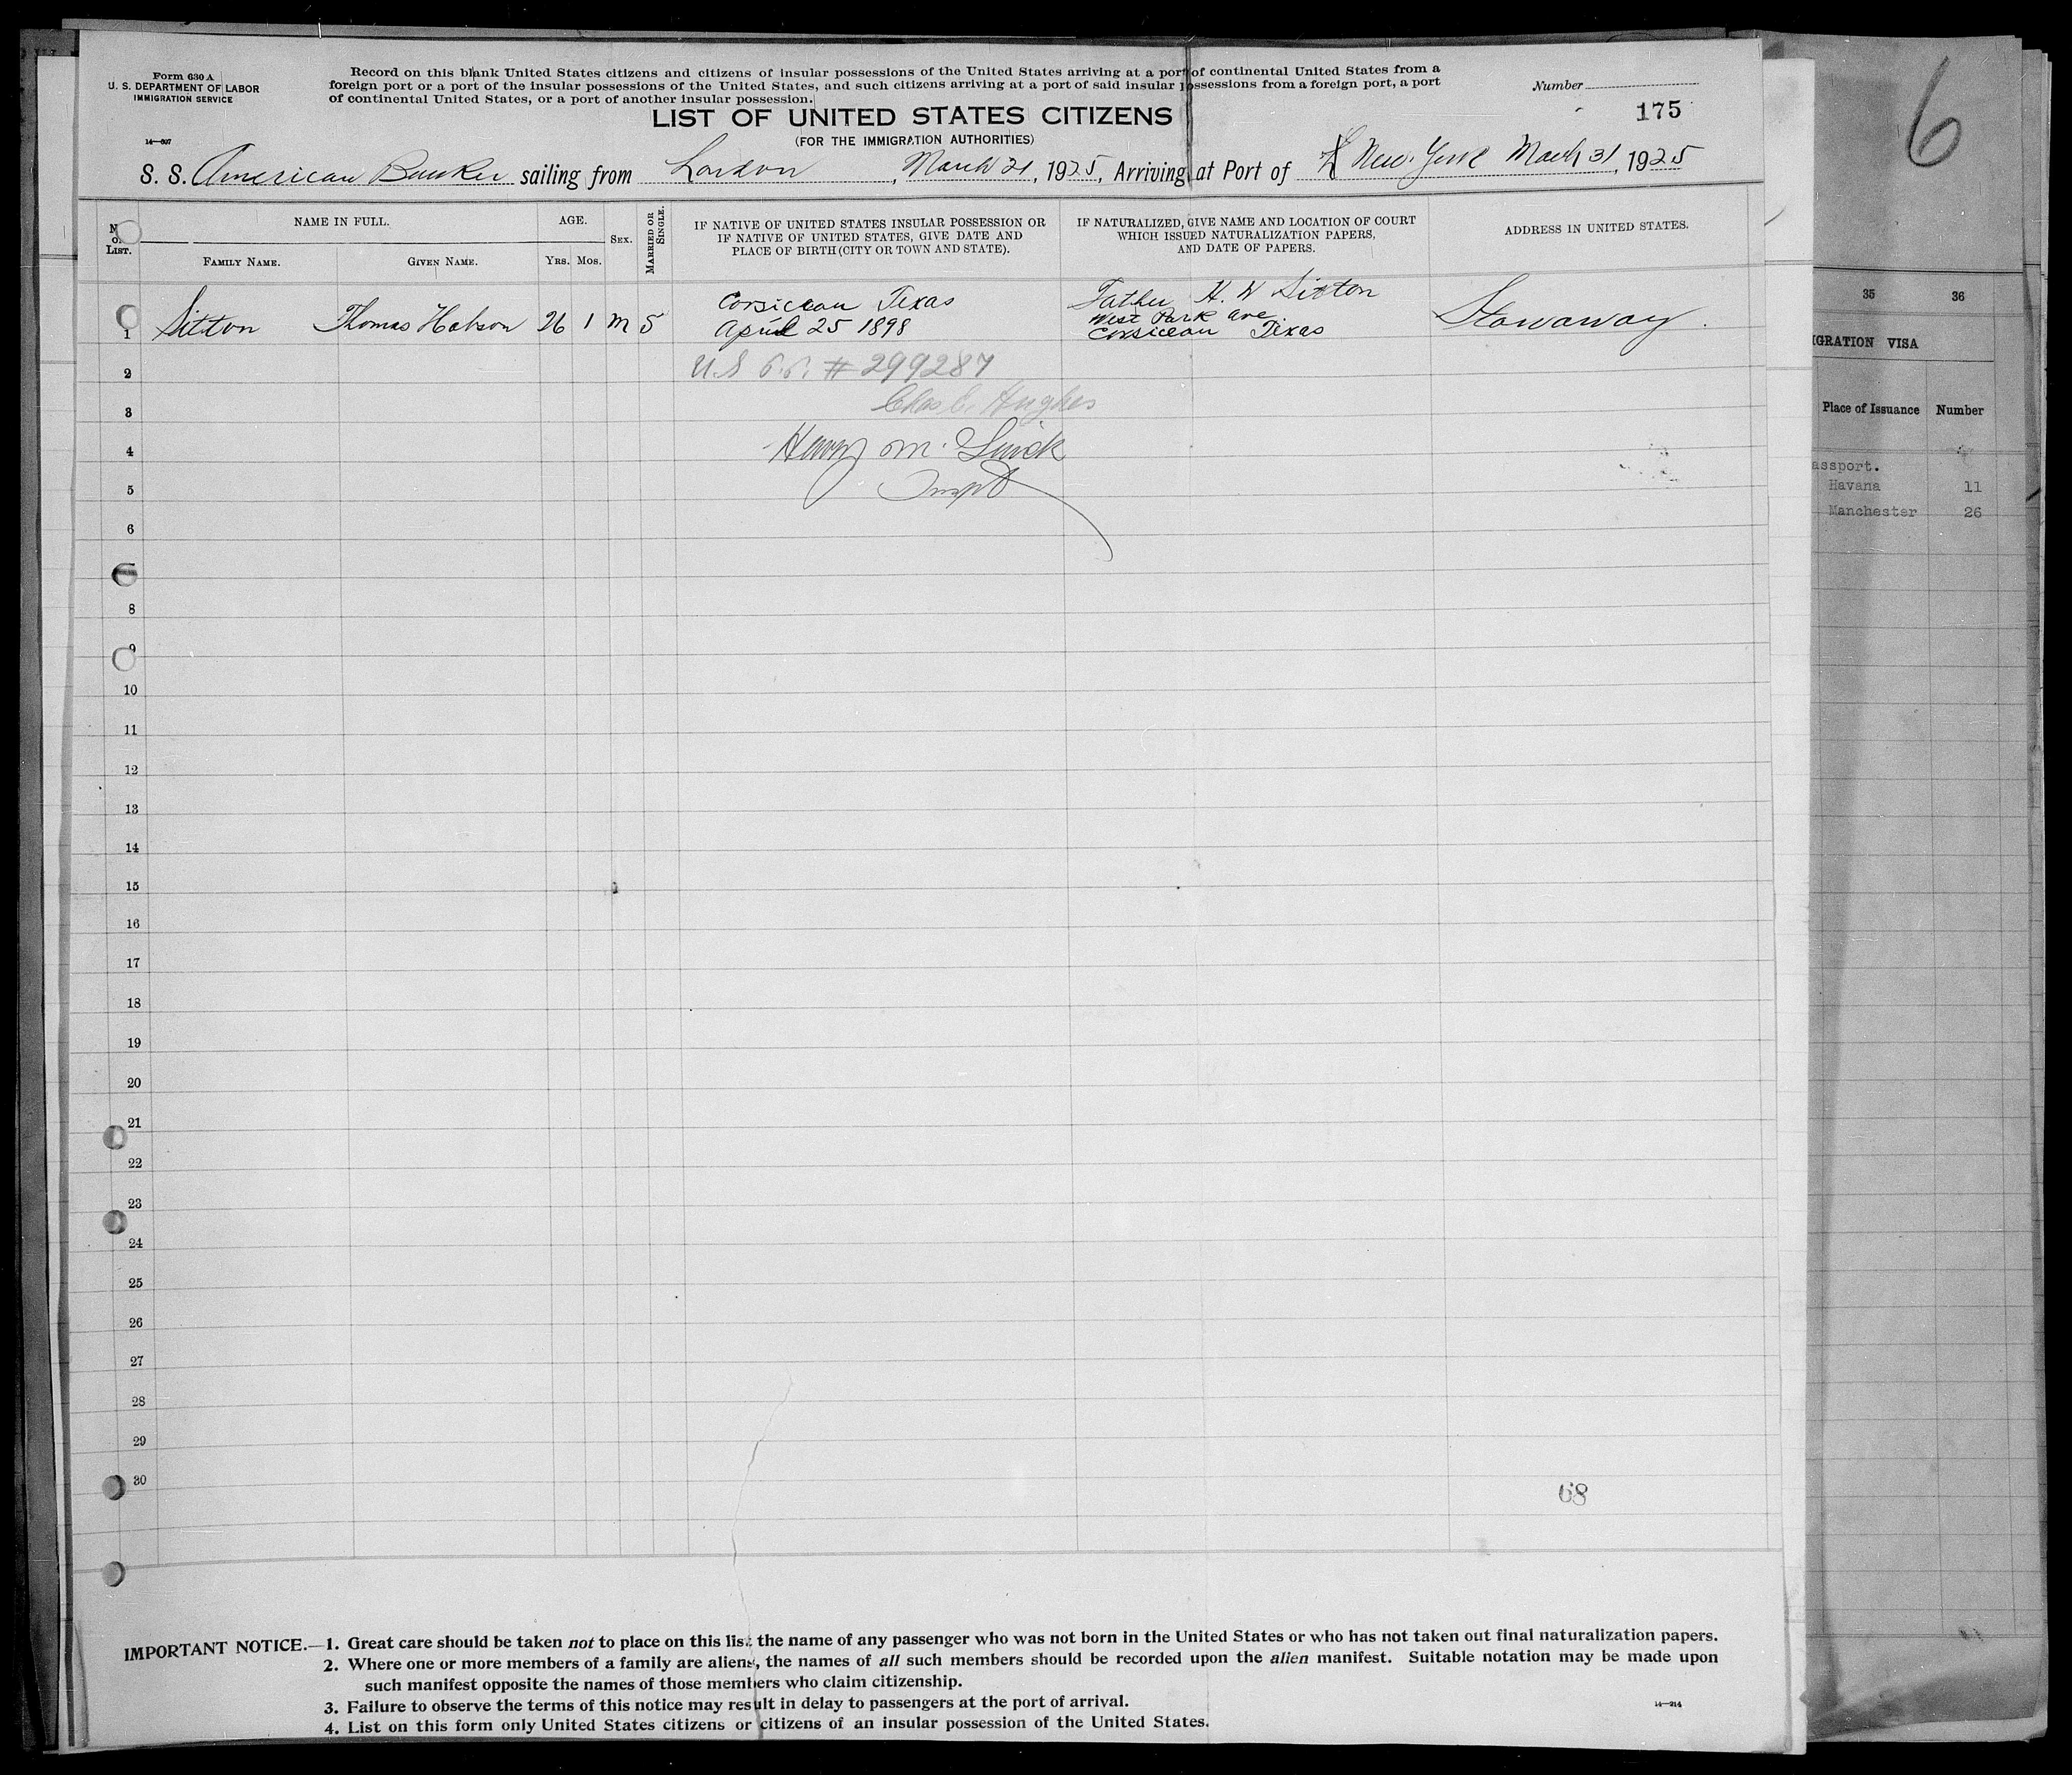 Form 630 A
U. S. DEPARTMENT OF LABOR
IMMIGRATION SERVICE
14—607
Record on this blank United States citizens and citizens of insular possessions of the United States arriving at a port of continental United States from a
foreign port or a port of the insular possessions of the United States, and such citizens arriving at a port of said insular possessions from a foreign port, a port
of continental United States, or a port of another insular possession.
Number
175
LIST OF UNITED STATES CITIZENS
(FOR THE IMMIGRATION AUTHORITIES)
S. S. American Banker sailing from London, March 21, 1925, Arriving at Port of New York March 31, 1925
No. on List.
NAME IN FULL.
Family Name.
Given Name.
AGE.
Yrs. Mos.
Sex.
Married or Single.
IF NATIVE OF UNITED STATES INSULAR POSSESSION OR
IF NATIVE OF UNITED STATES, GIVE DATE AND
PLACE OF BIRTH (CITY OR TOWN AND STATE).
IF NATURALIZED, GIVE NAME AND LOCATION OF COURT
WHICH ISSUED NATURALIZATION PAPERS,
AND DATE OF PAPERS.
ADDRESS IN UNITED STATES.
1 Sitton Thomas Hobson 26 1 m S
Corsican Texas
April 25 1898
Father H. W Sitton
West Park ave.
Corsican Texas
Stowaway.
2
U.S P.P. # 299287
3
Chas E. Hughes
4
Harry M.
5
Inspt
6
8
9
10
11
12
13
14
15
16
17
18
19
20
21
22
23
24
25
26
27
28
29
30
68
IMPORTANT NOTICE.—1. Great care should be taken not to place on this list the name of any passenger who was not born in the United States or who has not taken out final naturalization papers.
2. Where one or more members of a family are aliens, the names of all such members should be recorded upon the alien manifest. Suitable notation may be made upon
such manifest opposite the names of those members who claim citizenship.
3. Failure to observe the terms of this notice may result in delay to passengers at the port of arrival.
4. List on this form only United States citizens or citizens of an insular possession of the United States.
14—214
6
35 36
IGRATION VISA
Place of Issuance Number
assport.
Havana 11
Manchester 26